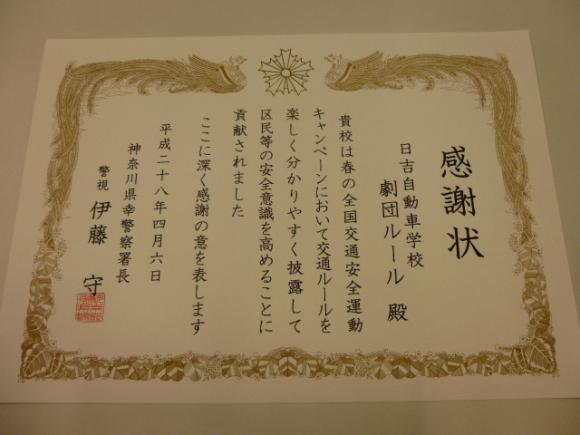 感謝状
日吉自動車学校
劇団ルール 殿
貴校は春の全国交通安全運動
キャンペーンにおいて交通ルールを
楽しく分かりやすく披露して
区民等の安全意識を高めることに
貢献されました
ここに深く感謝の意を表します
平成二十八年四月六日
神奈川県幸警察署長
警視 伊藤 守